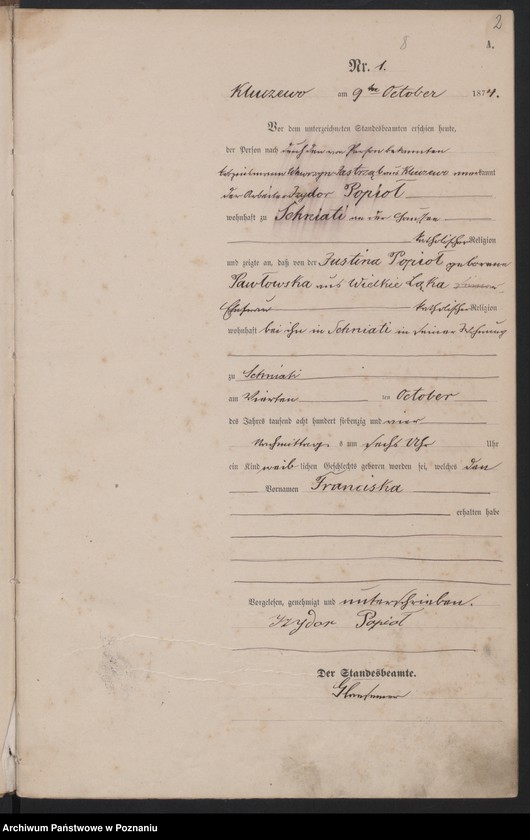 2
8
A.
Nr. 1.
Kluczewo am 9ten October 1874.
Vor dem unterzeichneten Standesbeamten erschien heute,
der Person nach durch den von Person bekannten
Wawrzyn Jastrząb aus Kluczewo anerkannt
der Arbeiter Izydor Popioł
wohnhaft zu Schniati an der Chaussee
katholischer Religion
und zeigte an, daß von der Justina Popioł geborene
Pawłowska aus Wielkie Łąka seiner
Ehefrau katholischer Religion
wohnhaft bei ihm in Schniati in seiner Wohnung
zu Schniati
am Vierten ten October
des Jahres tausend acht hundert siebenzig und vier
Nachmittags um sechs Uhr Uhr
ein Kind weiblichen Geschlechts geboren worden sei, welches den
Vornamen Franciska
erhalten habe
Vorgelesen, genehmigt und unterschrieben.
Izydor Popioł
Der Standesbeamte.
Archiwum Państwowe w Poznaniu